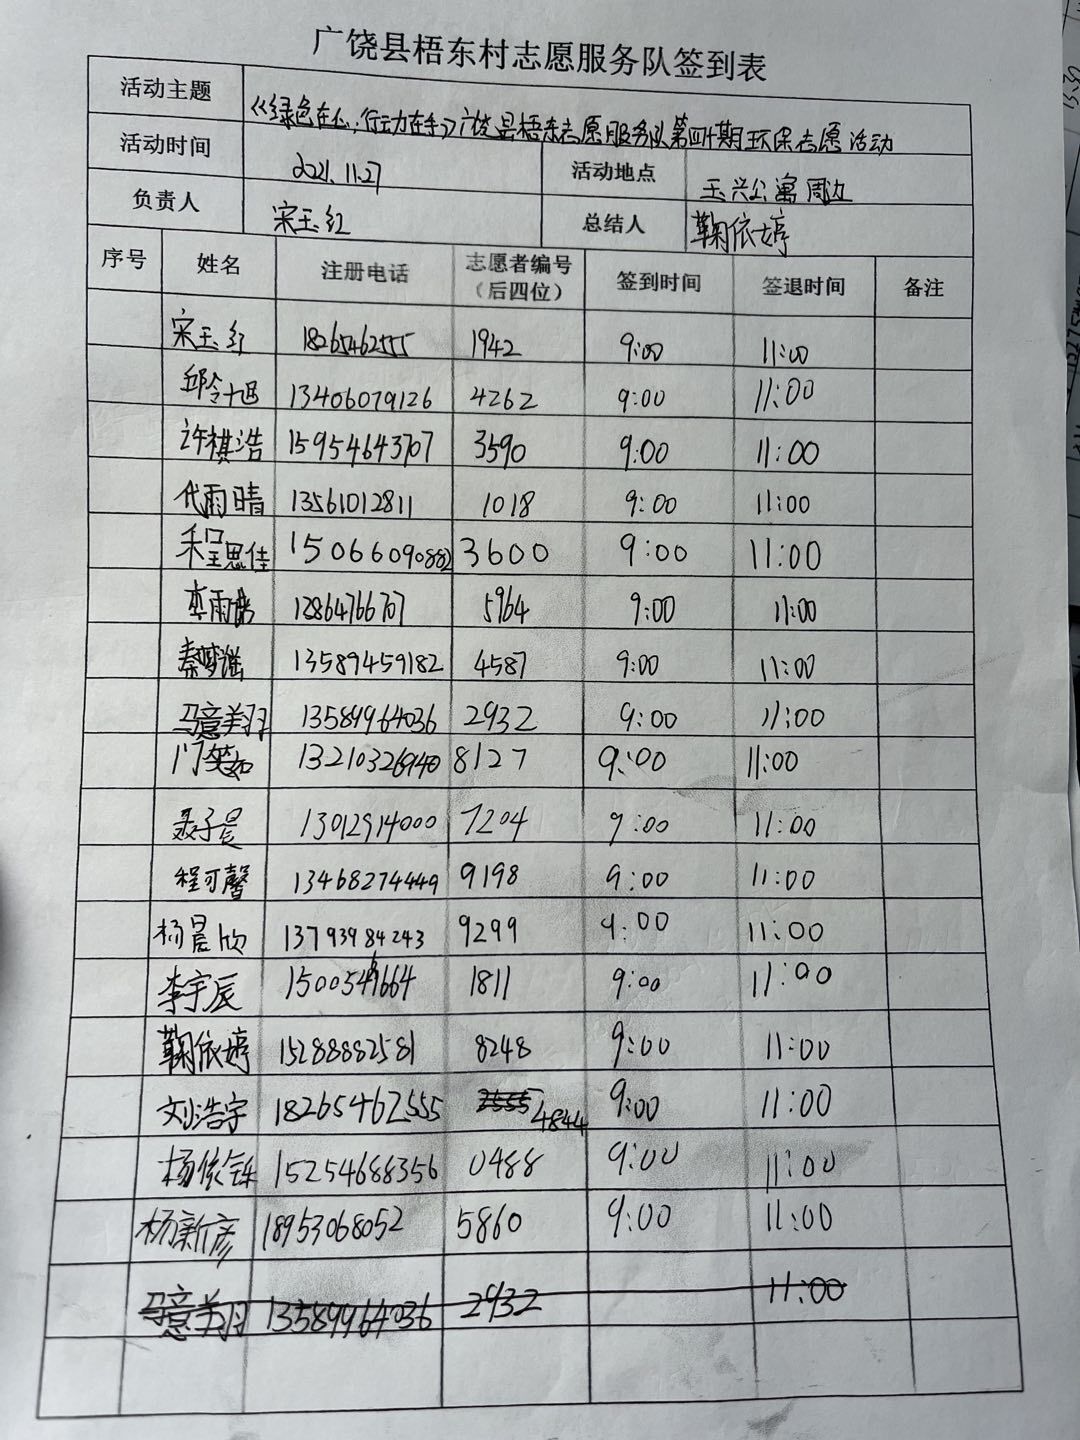 广饶县梧东村志愿服务队签到表
活动主题 《绿色在心,行动在手》广饶县梧东志愿服务队第四十期环保志愿活动
活动时间 2021.11.27 活动地点 玉兴公寓周边
负责人 宋玉红 总结人 鞠依婷
序号 姓名 注册电话 志愿者编号（后四位） 签到时间 签退时间 备注
宋玉红 18265462555 1942 9:00 11:00
邱令旭 13406079126 4262 9:00 11:00
许棋浩 15954643707 3590 9:00 11:00
代雨晴 13561012811 1018 9:00 11:00
程思佳 15066090882 3600 9:00 11:00
12864766707 5964 9:00 11:00
秦梦谣 13589459182 4587 9:00 11:00
马意美羽 13589964036 2932 9:00 11:00
门笑如 13210326940 8127 9:00 11:00
聂子晨 13012914000 7204 9:00 11:00
程可馨 13468274449 9198 9:00 11:00
杨晨欣 13793984243 9299 9:00 11:00
李宇辰 1811 9:00 11:00
鞠依婷 15288882581 8248 9:00 11:00
刘浩宇 18265462555 2555 4844 9:00 11:00
杨依铄 15254688356 0488 9:00 11:00
杨新彦 18953068052 5860 9:00 11:00
马意美羽 13589964036 2932 11:00